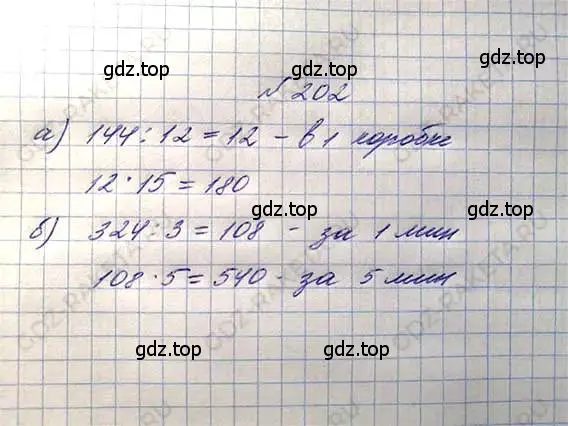 gdz.top gdz.top
№ 202
а) 144 : 12 = 12 - в 1 коробке
12 · 15 = 180
gdz.top gdz.top
б) 324 : 3 = 108 - за 1 мин
108 · 5 = 540 - за 5 мин
gdz.top gdz.top